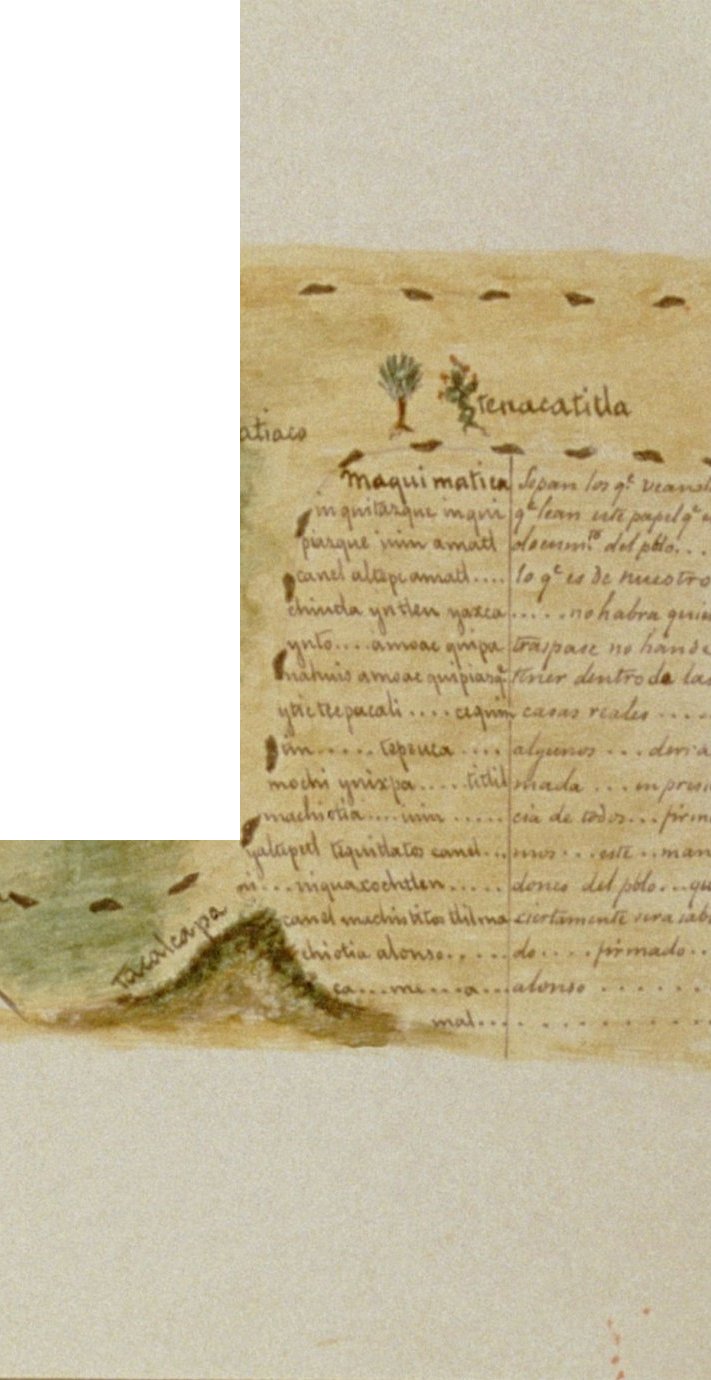 tenacatitla
atiaco
maquimatica
inquitasque inqui
piasque inin amatl
canel altepe amatl....
chiuda yntlen yaxca
ynto.... amoac quipa
nahuis amoac quipiasq
ytic tecpacali .... cequin
in..... tepeuca ....
mochi ynixpa..... titlil
machiotia.... inin .....
yaltepetl tequitlatos canel...
ni... niquaxochtlen.....
canel machistitos tlilma
chiotia alonso......
ca....me...a...
mal....
Sepan los qe vean
qe lean este papel qe
documto del pblo...
lo qe es de nuestro
..... no habra quien
traspase no han de
tener dentro de las
casas reales ....
algunos ... derra
mada ... en presen
cia de todos... firma
mos ... este .. man
dones del pblo... qu
ciertamente sera sab
do.... firmado..
alonso ......
Tacalcapa